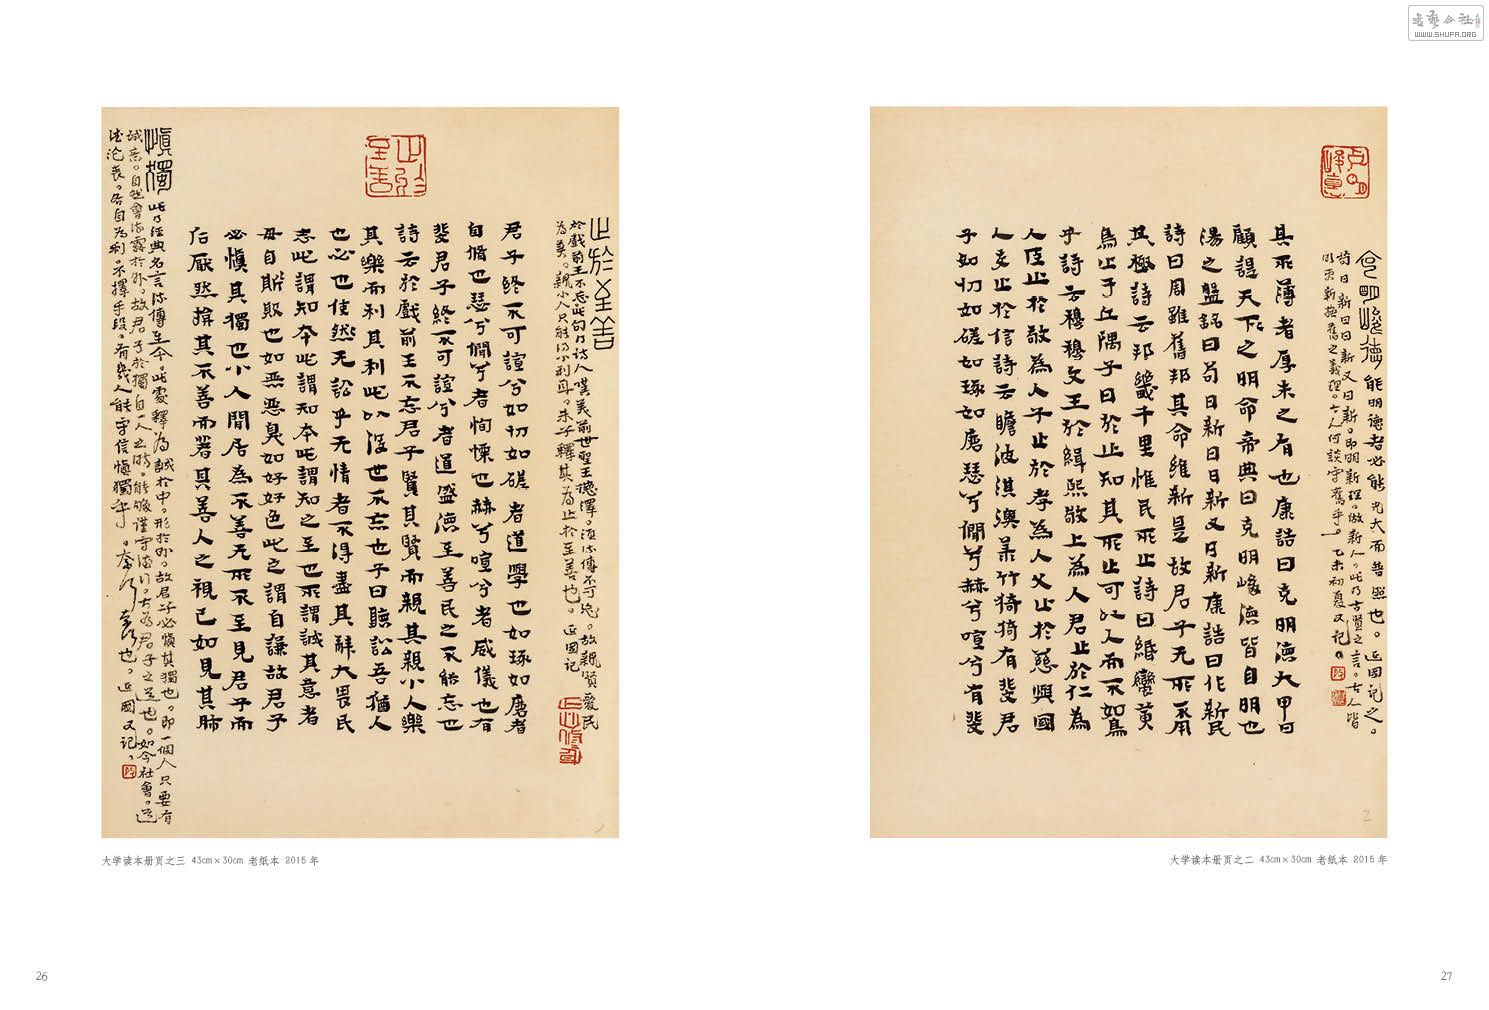 克明峻德 能明德者必能光大而普照也。正国记之。
苟日新日日新又日新。即明新理。做新人。此乃古贤之言。古人皆
明更新 舊之義理。今人何談守舊乎。乙未初夏又记。
其所薄者厚未之有也康誥曰克明德大甲曰
顧諟天下之明命帝典曰克明峻德皆自明也
湯之盤銘曰苟日新日日新又日新康誥曰作新民
詩曰周雖舊邦其命維新是故君子无所不用
其極詩云邦畿千里惟民所止詩曰緡蠻黃
鳥止于丘隅子曰於止知其所止可以人而不如鳥
乎詩云穆穆文王於緝熙敬止為人君止於仁為
人臣止於敬為人子止於孝為人父止於慈與國
人交止於信詩云瞻彼淇澳菉竹猗猗有斐君
子如切如磋如琢如磨瑟兮僩兮赫兮喧兮有斐
大学读本册页之二 43cm×30cm 老纸本 2015年
27
止於至善
於戲前王不忘此句乃詩人嘆美前世聖王德澤。流傳不可忘。故親賢愛民
為美。親小人只能得小利耳。朱子釋其為止於至善也。正国记
君子終不可諠兮如切如磋者道學也如琢如磨者
自脩也瑟兮僩兮者恂慄也赫兮喧兮者威儀也有
斐君子終不可諠兮者道盛德至善民之不能忘也
詩云於戲前王不忘君子賢其賢而親其親小人樂
其樂而利其利此以沒世不忘也子曰聽訟吾猶人
也必也使然无訟乎无情者不得盡其辭大畏民
志此謂知本此謂知本此謂知之至也所謂誠其意者
毋自欺也如惡惡臭如好好色此之謂自謙故君子
必慎其獨也小人閒居為不善无所不至見君子而
后厭然揜其不善而著其善人之視己如見其肺
止於至善
慎獨 此乃經典名言流傳至今。此處釋為誠於中。形於外。故君子必慎其獨也。即一個人只要有
誠意。自然會流露於外。故君子於獨自一人之時。能夠謹守德行。方為君子之道也。如今社會。道
德淪喪。各自為利。不擇手段。有幾人能守信慎獨乎。 也。正國又记。
大学读本册页之三 43cm×30cm 老纸本 2015年
26
WWW.SHUFA.ORG